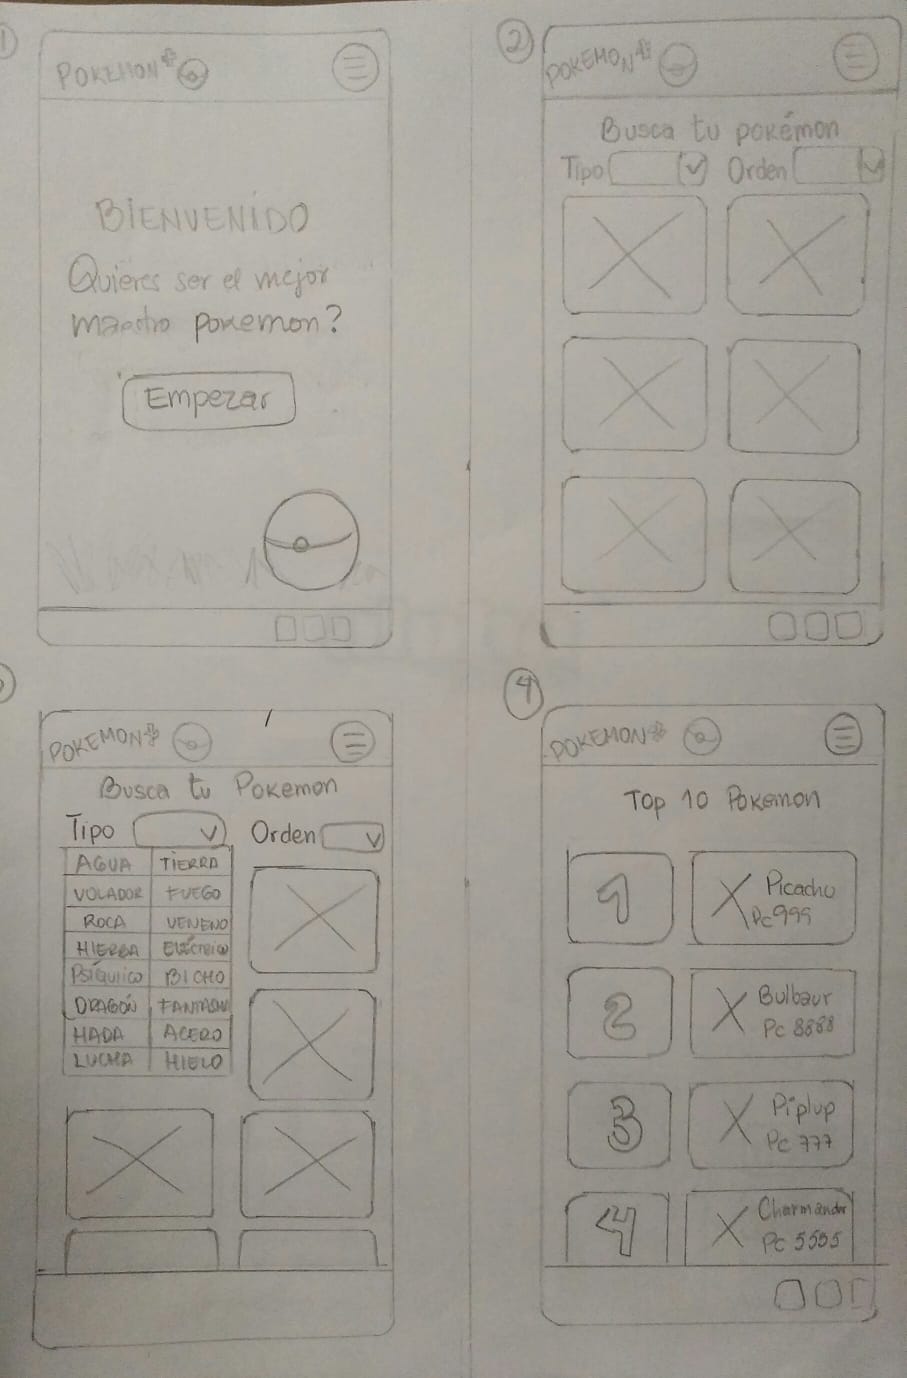 1
POKEMON
BIENVENIDO
Quieres ser el mejor
maestro pokemon?
Empezar
2
POKEMON
Busca tu pokémon
Tipo Orden
POKEMON
Busca tu Pokemon
Tipo Orden
AGUA TIERRA
VOLADOR FUEGO
ROCA VENENO
HIERBA Eléctrico
Psíquico BICHO
DRAGÓN FANTASMA
HADA ACERO
LUCHA HIELO
4
POKEMON
TOP 10 Pokemon
1 Picachu
Pc 999
2 Bulbaur
Pc 8888
3 Piplup
Pc 777
4 Charmander
Pc 5555